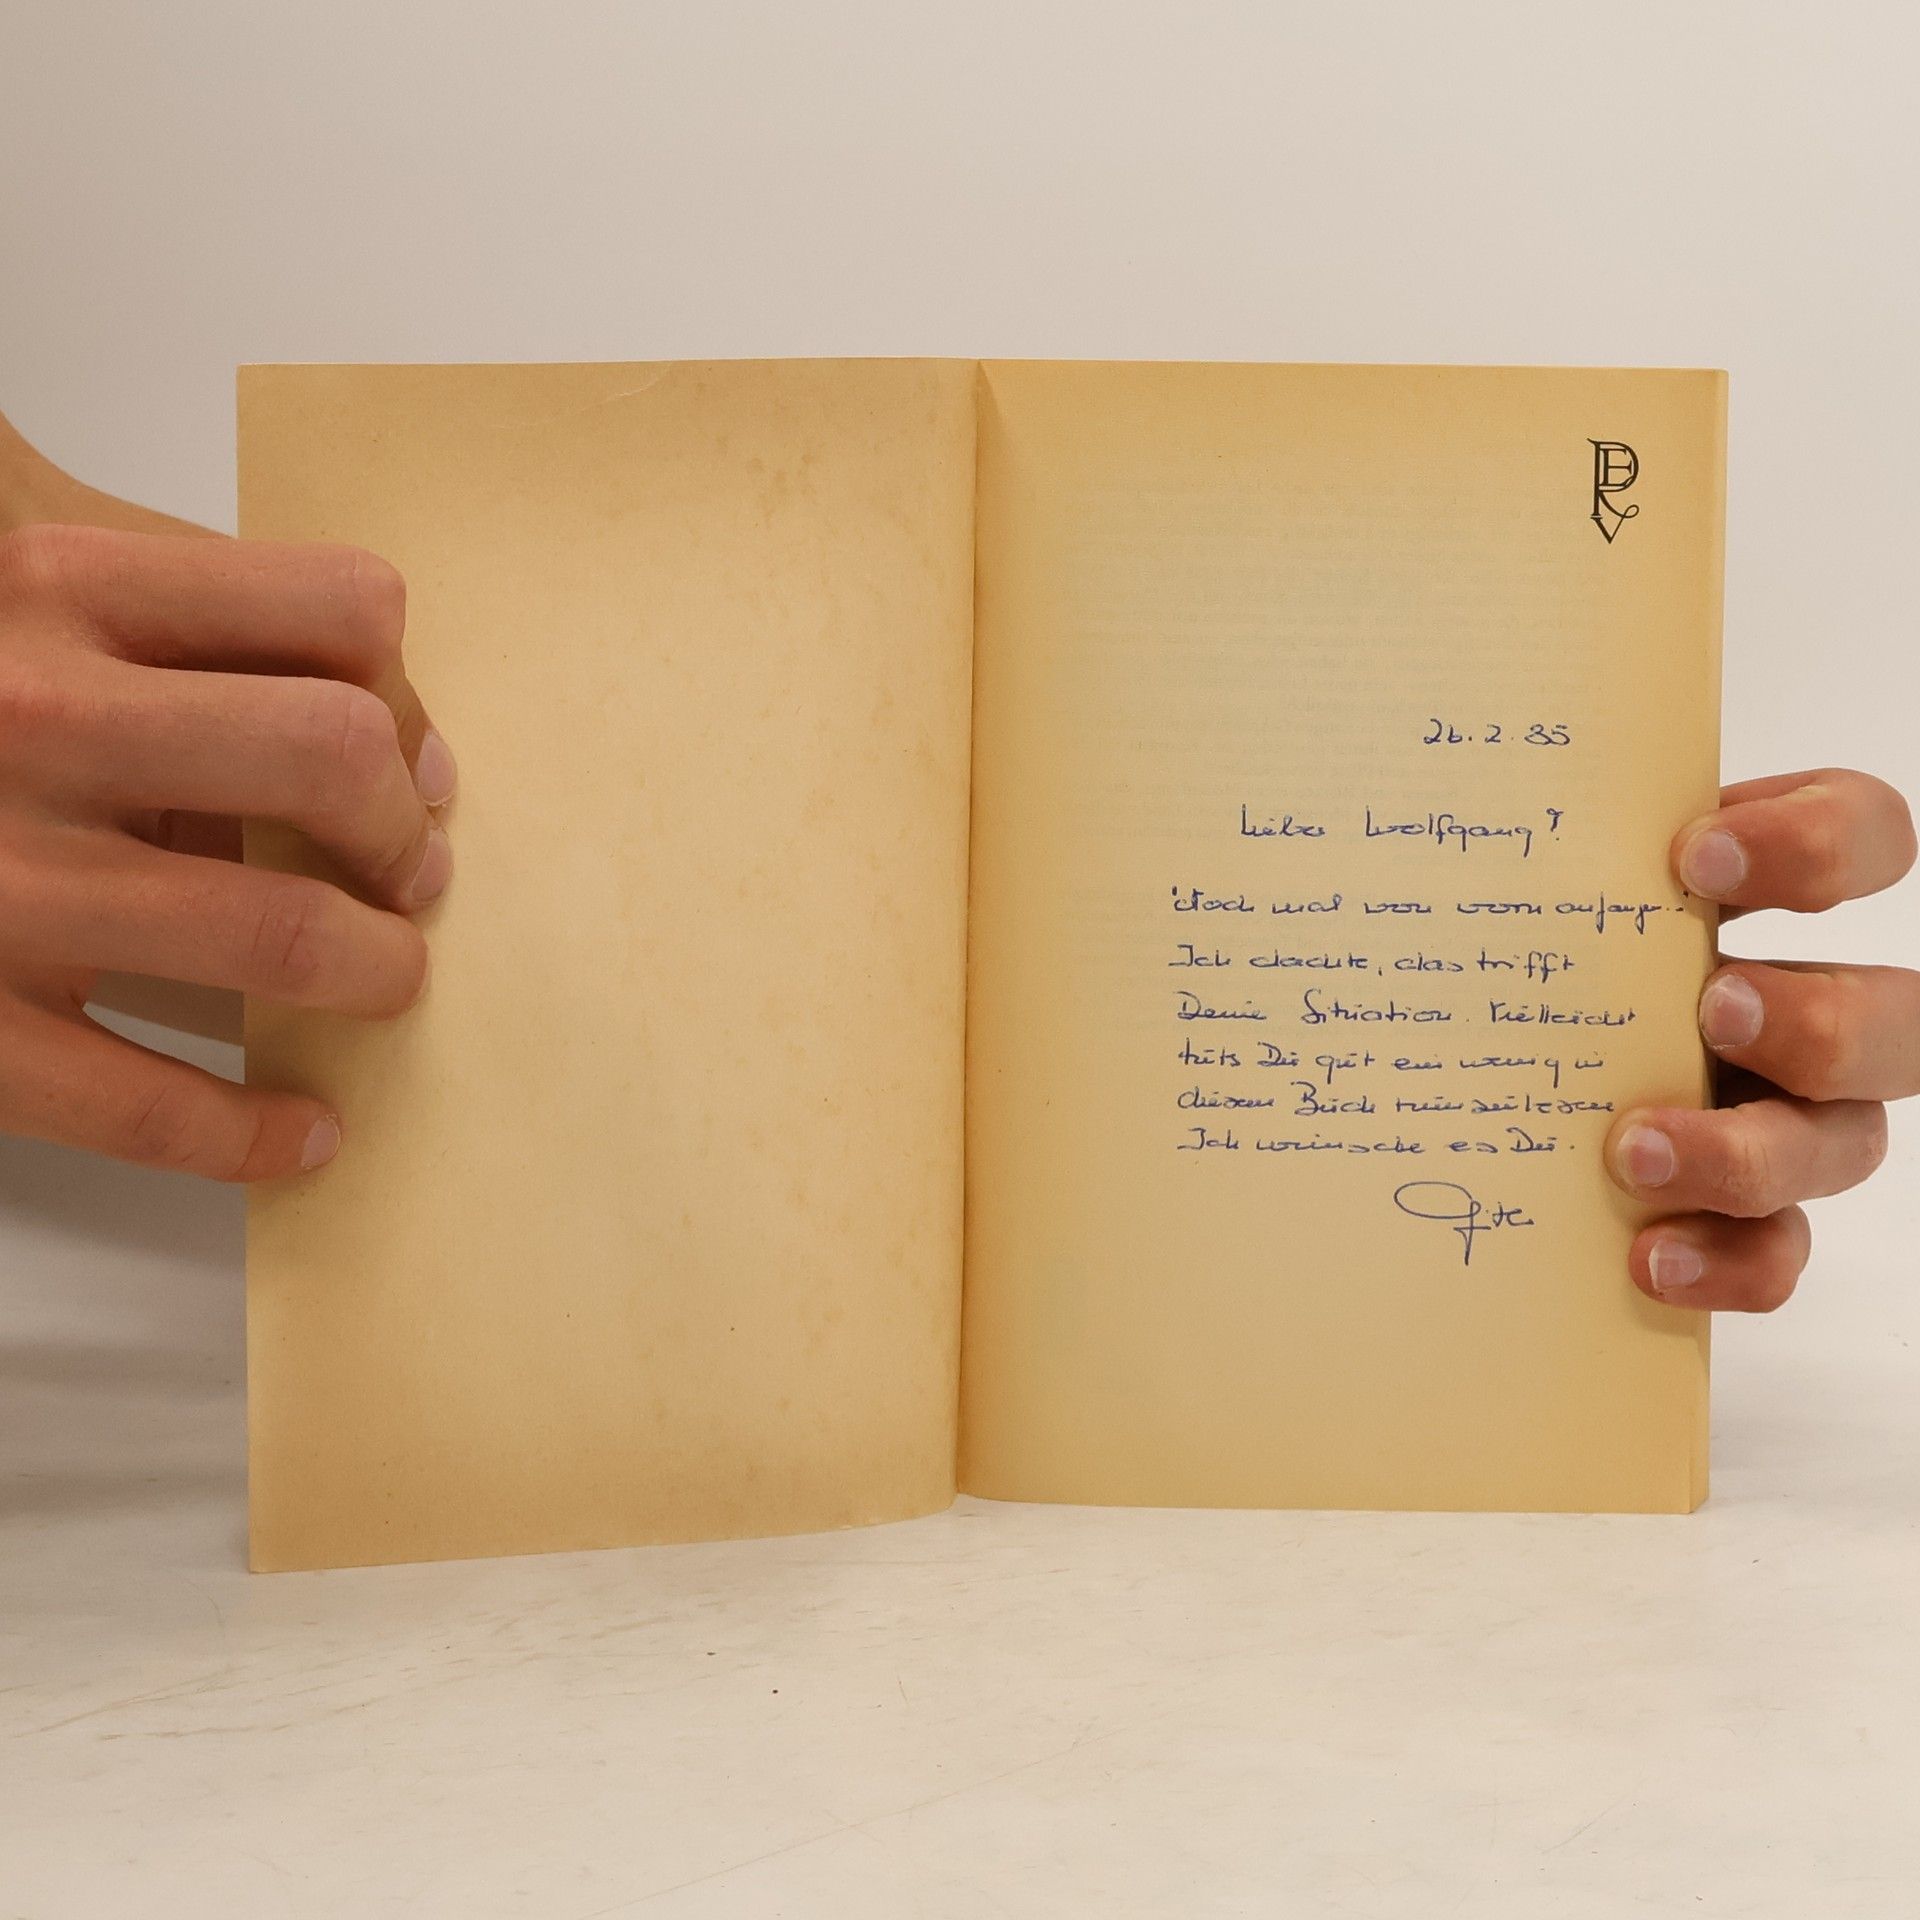 PERV
26.2.85
Lieber Wolfgang!
"Noch mal von vorn anfangen..."
Ich dachte, das trifft
Deine Situation. Vielleicht
tuts Dir gut ein wenig in
diesem Buch reinzulesen
Ich wünsche es Dir.